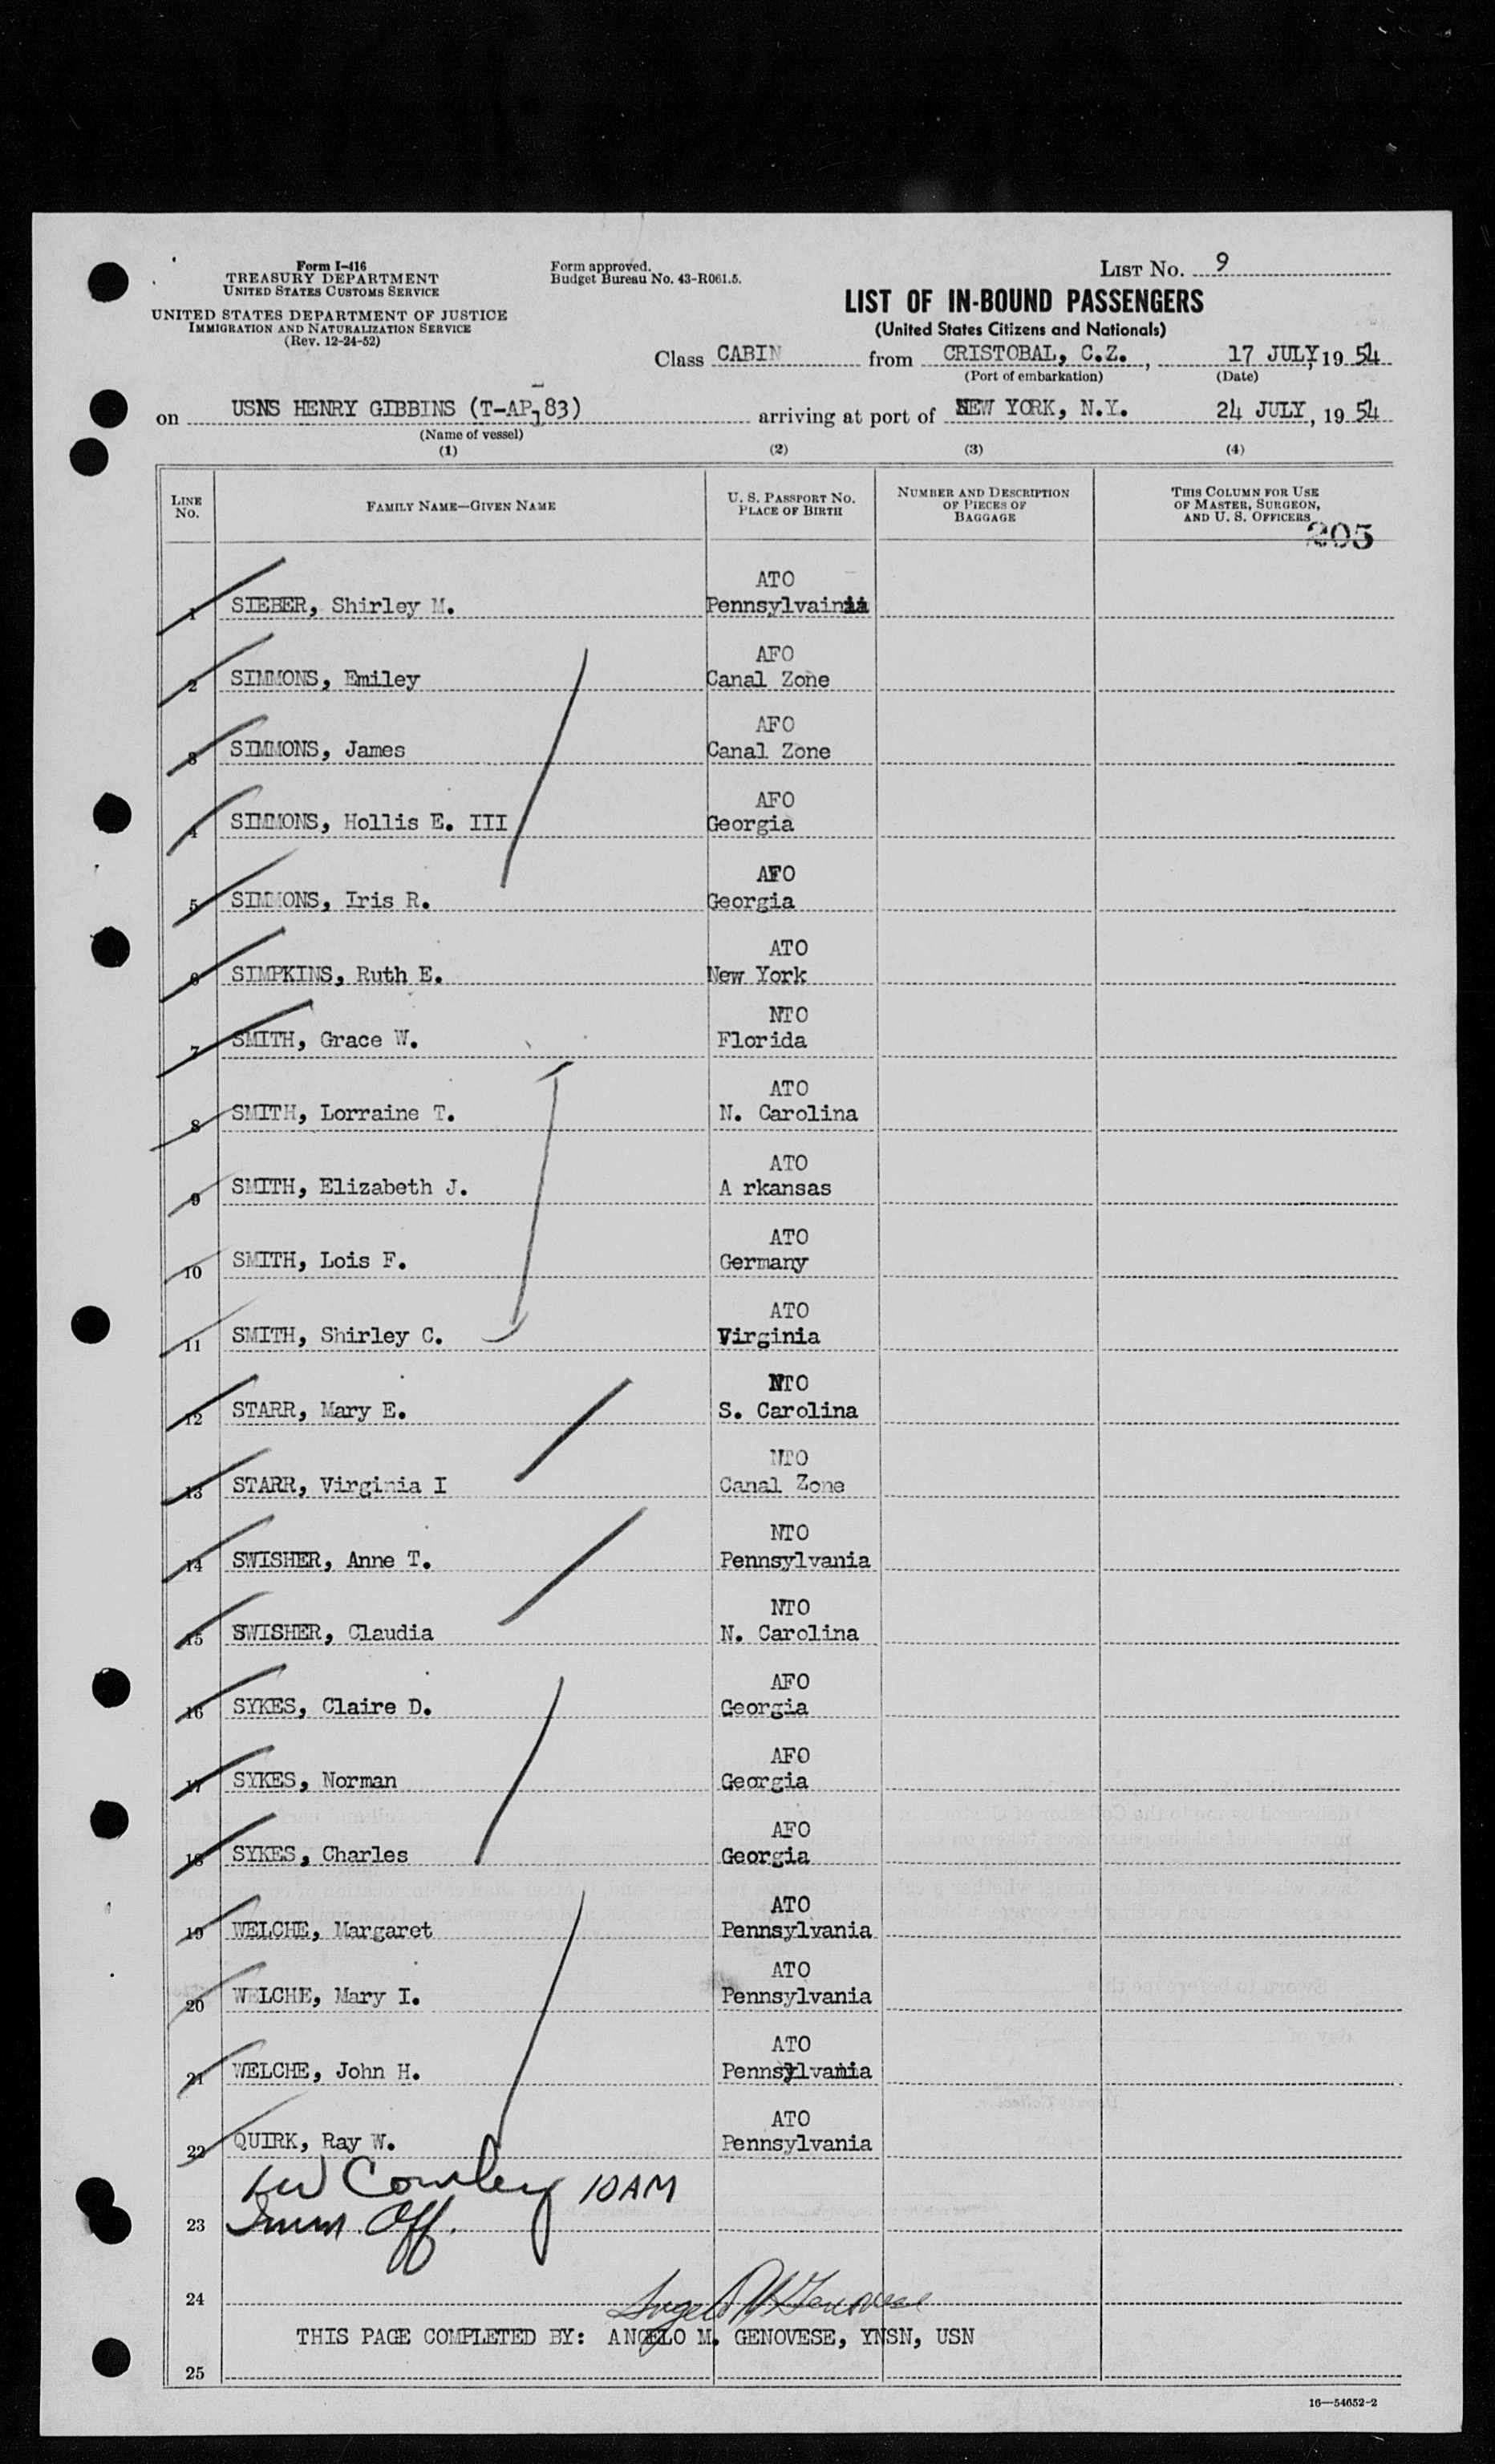 Form I-416
TREASURY DEPARTMENT
UNITED STATES CUSTOMS SERVICE
UNITED STATES DEPARTMENT OF JUSTICE
IMMIGRATION AND NATURALIZATION SERVICE
(Rev. 12-24-52)
Form approved.
Budget Bureau No. 43-R061.5.
LIST No. 9
LIST OF IN-BOUND PASSENGERS
(United States Citizens and Nationals)
Class CABIN from CRISTOBAL, C.Z., 17 JULY, 19 54
(Port of embarkation) (Date)
on USNS HENRY GIBBINS (T-AP-183) arriving at port of NEW YORK, N.Y. 24 JULY, 19 54
(Name of vessel)
(1) (2) (3) (4)
LINE No. FAMILY NAME—GIVEN NAME U. S. PASSPORT NO. PLACE OF BIRTH NUMBER AND DESCRIPTION OF PIECES OF BAGGAGE THIS COLUMN FOR USE OF MASTER, SURGEON, AND U. S. OFFICERS
205
ATO
1 SIEBER, Shirley M. Pennsylvainia
AFO
2 SIMMONS, Emiley Canal Zone
AFO
3 SIMMONS, James Canal Zone
AFO
4 SIMMONS, Hollis E. III Georgia
AFO
5 SIMMONS, Iris R. Georgia
ATO
6 SIMPKINS, Ruth E. New York
NTO
7 SMITH, Grace W. Florida
ATO
8 SMITH, Lorraine T. N. Carolina
ATO
9 SMITH, Elizabeth J. A rkansas
ATO
10 SMITH, Lois F. Germany
ATO
11 SMITH, Shirley C. Virginia
NTO
12 STARR, Mary E. S. Carolina
NTO
13 STARR, Virginia I Canal Zone
NTO
14 SWISHER, Anne T. Pennsylvania
NTO
15 SWISHER, Claudia N. Carolina
AFO
16 SYKES, Claire D. Georgia
AFO
17 SYKES, Norman Georgia
AFO
18 SYKES, Charles Georgia
ATO
19 WELCHE, Margaret Pennsylvania
ATO
20 WELCHE, Mary I. Pennsylvania
ATO
21 WELCHE, John H. Pennsylvania
ATO
22 QUIRK, Ray W. Pennsylvania
Cowley 10 AM
23 Imm. Off.
24 Angelo M Genovese
THIS PAGE COMPLETED BY: ANGELO M. GENOVESE, YNSN, USN
25
16—54652-2